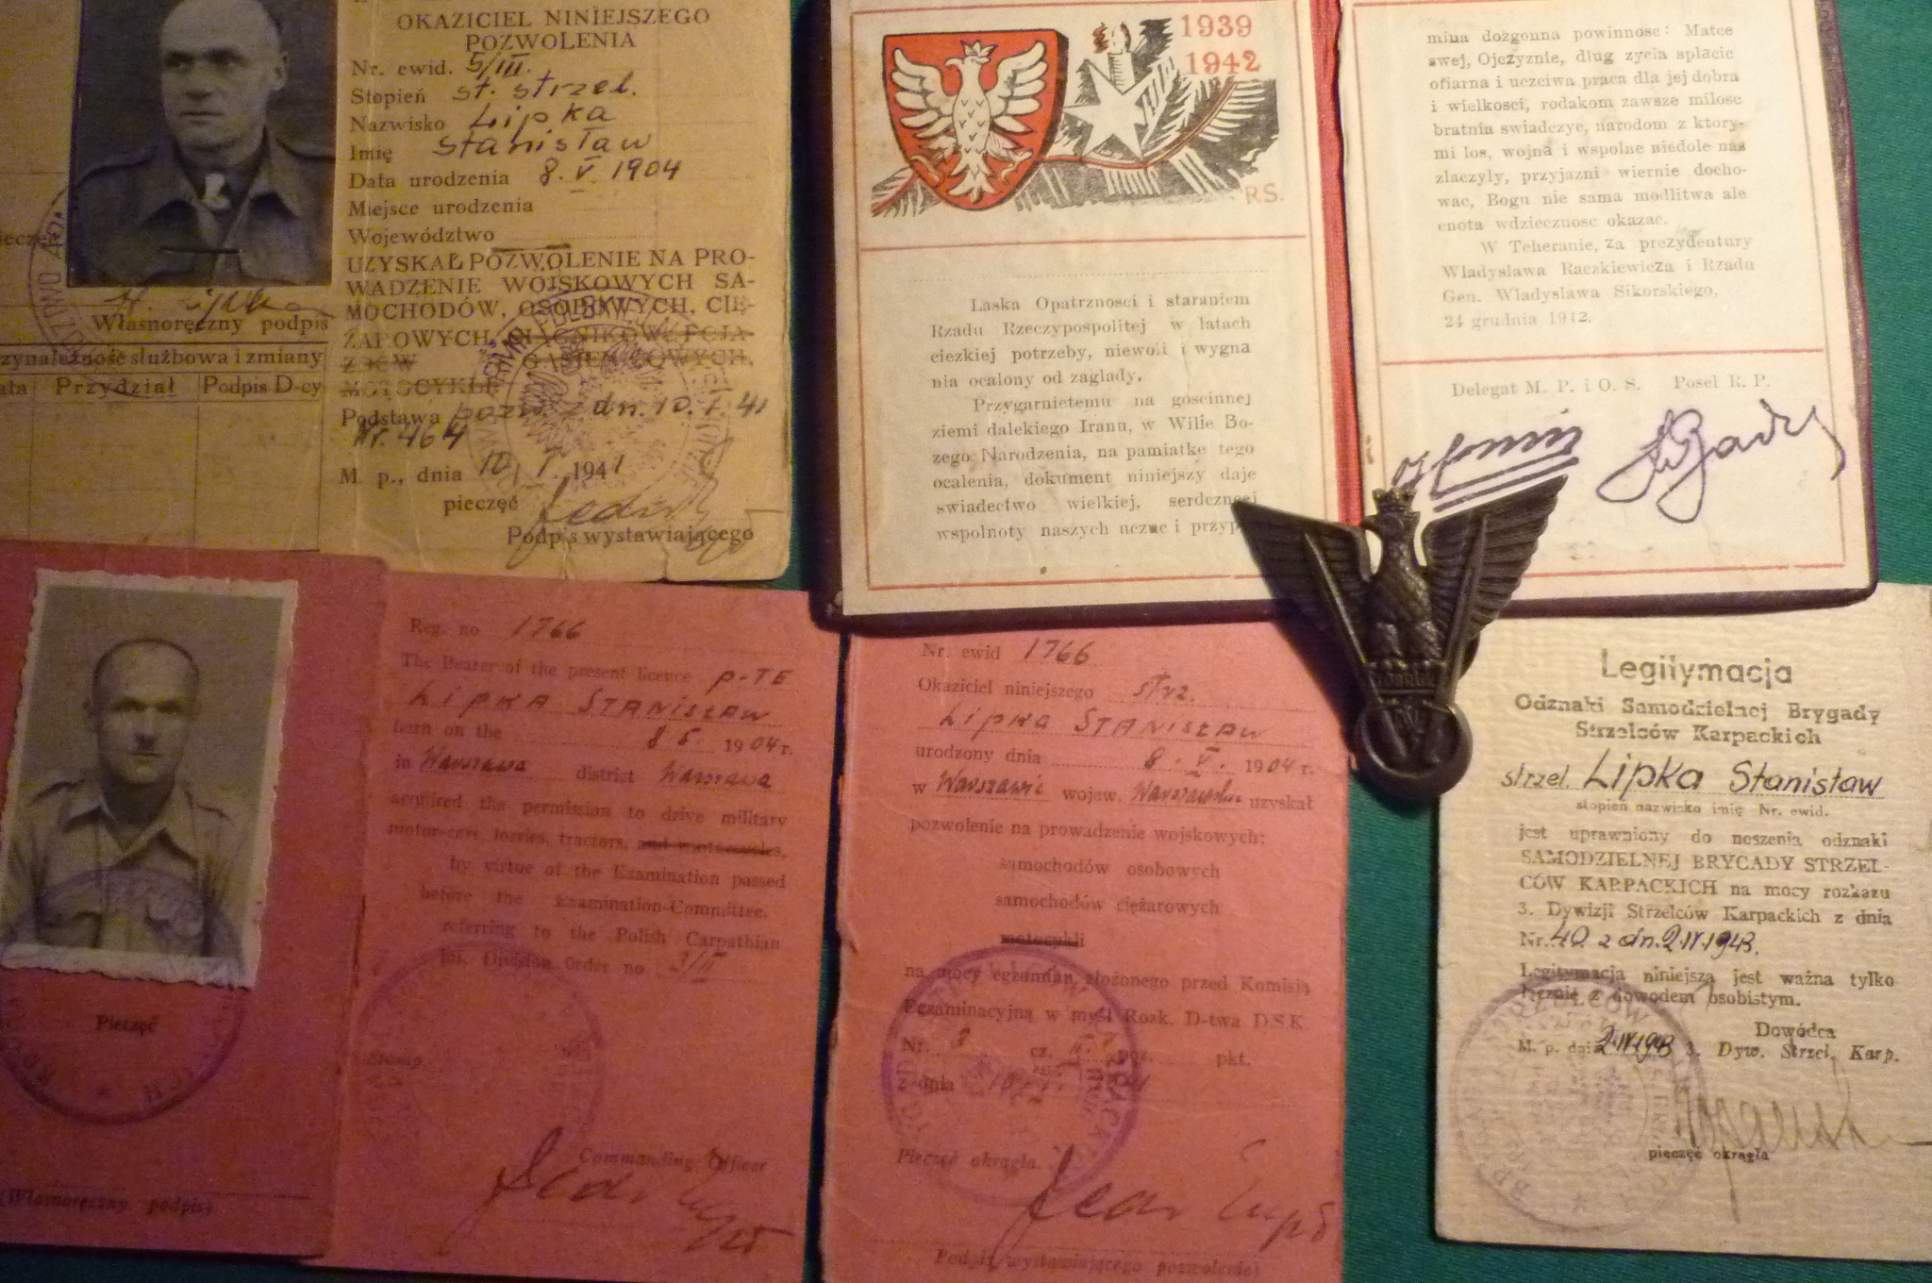 OKAZICIEL NINIEJSZEGO
POZWOLENIA
Nr. ewid. 5/III.
Stopień st. strzel.
Nazwisko Lipka
Imię Stanisław
Data urodzenia 8. V. 1904
Miejsce urodzenia
Województwo
UZYSKAŁ POZWOLENIE NA PRO-
WADZENIE WOJSKOWYCH SA-
MOCHODÓW, OSOBOWYCH, CIĘ-
ŻAROWYCH,
MOTOCYKLE
Podstawa pozw. z dn. 10. I. 41
Nr. 464
M. p., dnia 10. I. 1941
pieczęć
Podpis wystawiającego
Własnoręczny podpis
zynależność służbowa i zmiany
ata Przydział Podpis D-cy
1939
1942
RS.
Laska Opatrznosci i staraniem
Rzadu Rzeczypospolitej w latach
ciezkiej potrzeby, niewoli i wygna
nia ocalony od zaglady.
Przygarnietemu na goscinnej
ziemi dalekiego Iranu, w Wilie Bo-
zego Narodzenia, na pamiatke tego
ocalenia, dokument niniejszy daje
swiadectwo wielkiej, serdecznej
wspolnoty naszych uczuc i przyp
mina dozgonna powinnosc: Matce
swej, Ojczyznie, dlug zycia splacic
ofiarna i uczciwa praca dla jej dobra
i wielkosci, rodakom zawsze milosc
bratnia swiadczyc, narodom z ktory-
mi los, wojna i wspolne niedole nas
zlaczyly, przyjazni wiernie docho-
wac, Bogu nie sama modlitwa ale
cnota wdziecznosc okazac.
W Teheranie, za prezydentury
Wladyslawa Raczkiewicza i Rzadu
Gen. Wladyslawa Sikorskiego,
24 grudnia 1942.
Delegat M. P. i O. S. Posel R. P.
Pieczęć
(Własnoręczny podpis)
Reg. no 1766
The Bearer of the present licence p-TE
LIPKA STANISŁAW
born on the 8 5. 1904 r.
in Warszawa district Warszawa
acquired the permission to drive military
motor-cars, lorries, tractors, and motorcycles,
by virtue of the Examination passed
before the Examination-Committee,
referring to the Polish Carpathian
Inf. Division Order no 3/II
Stamp
Commanding Officer
Nr. ewid 1766
Okaziciel niniejszego strz.
LIPKA STANISŁAW
urodzony dnia 8. V. 1904 r.
w Warszawie wojew. uzyskał
pozwolenie na prowadzenie wojskowych:
samochodów osobowych
samochodów ciężarowych
motocykli
na mocy egzaminu złożonego przed Komisją
Egzaminacyjną w myśl Rozk. D-twa DSK
Nr. 8 cz. pkt.
z dnia
Pieczęć okrągła
Podpis wystawiającego pozwolenie)
Legitymacja
Odznaki Samodzielnej Brygady
Strzelców Karpackich
strzel. Lipka Stanisław
stopień nazwisko imię Nr. ewid.
jest uprawniony do noszenia odznaki
SAMODZIELNEJ BRYGADY STRZEL-
CÓW KARPACKICH na mocy rozkazu
3. Dywizji Strzelców Karpackich z dnia
Nr. 40 z dn. 2.IV.1943.
Legitymacja niniejsza jest ważna tylko
łącznie z dowodem osobistym.
Dowódca
M. p. dnia 2.IV.1943 3. Dyw. Strzel. Karp.
pieczęć okrągła